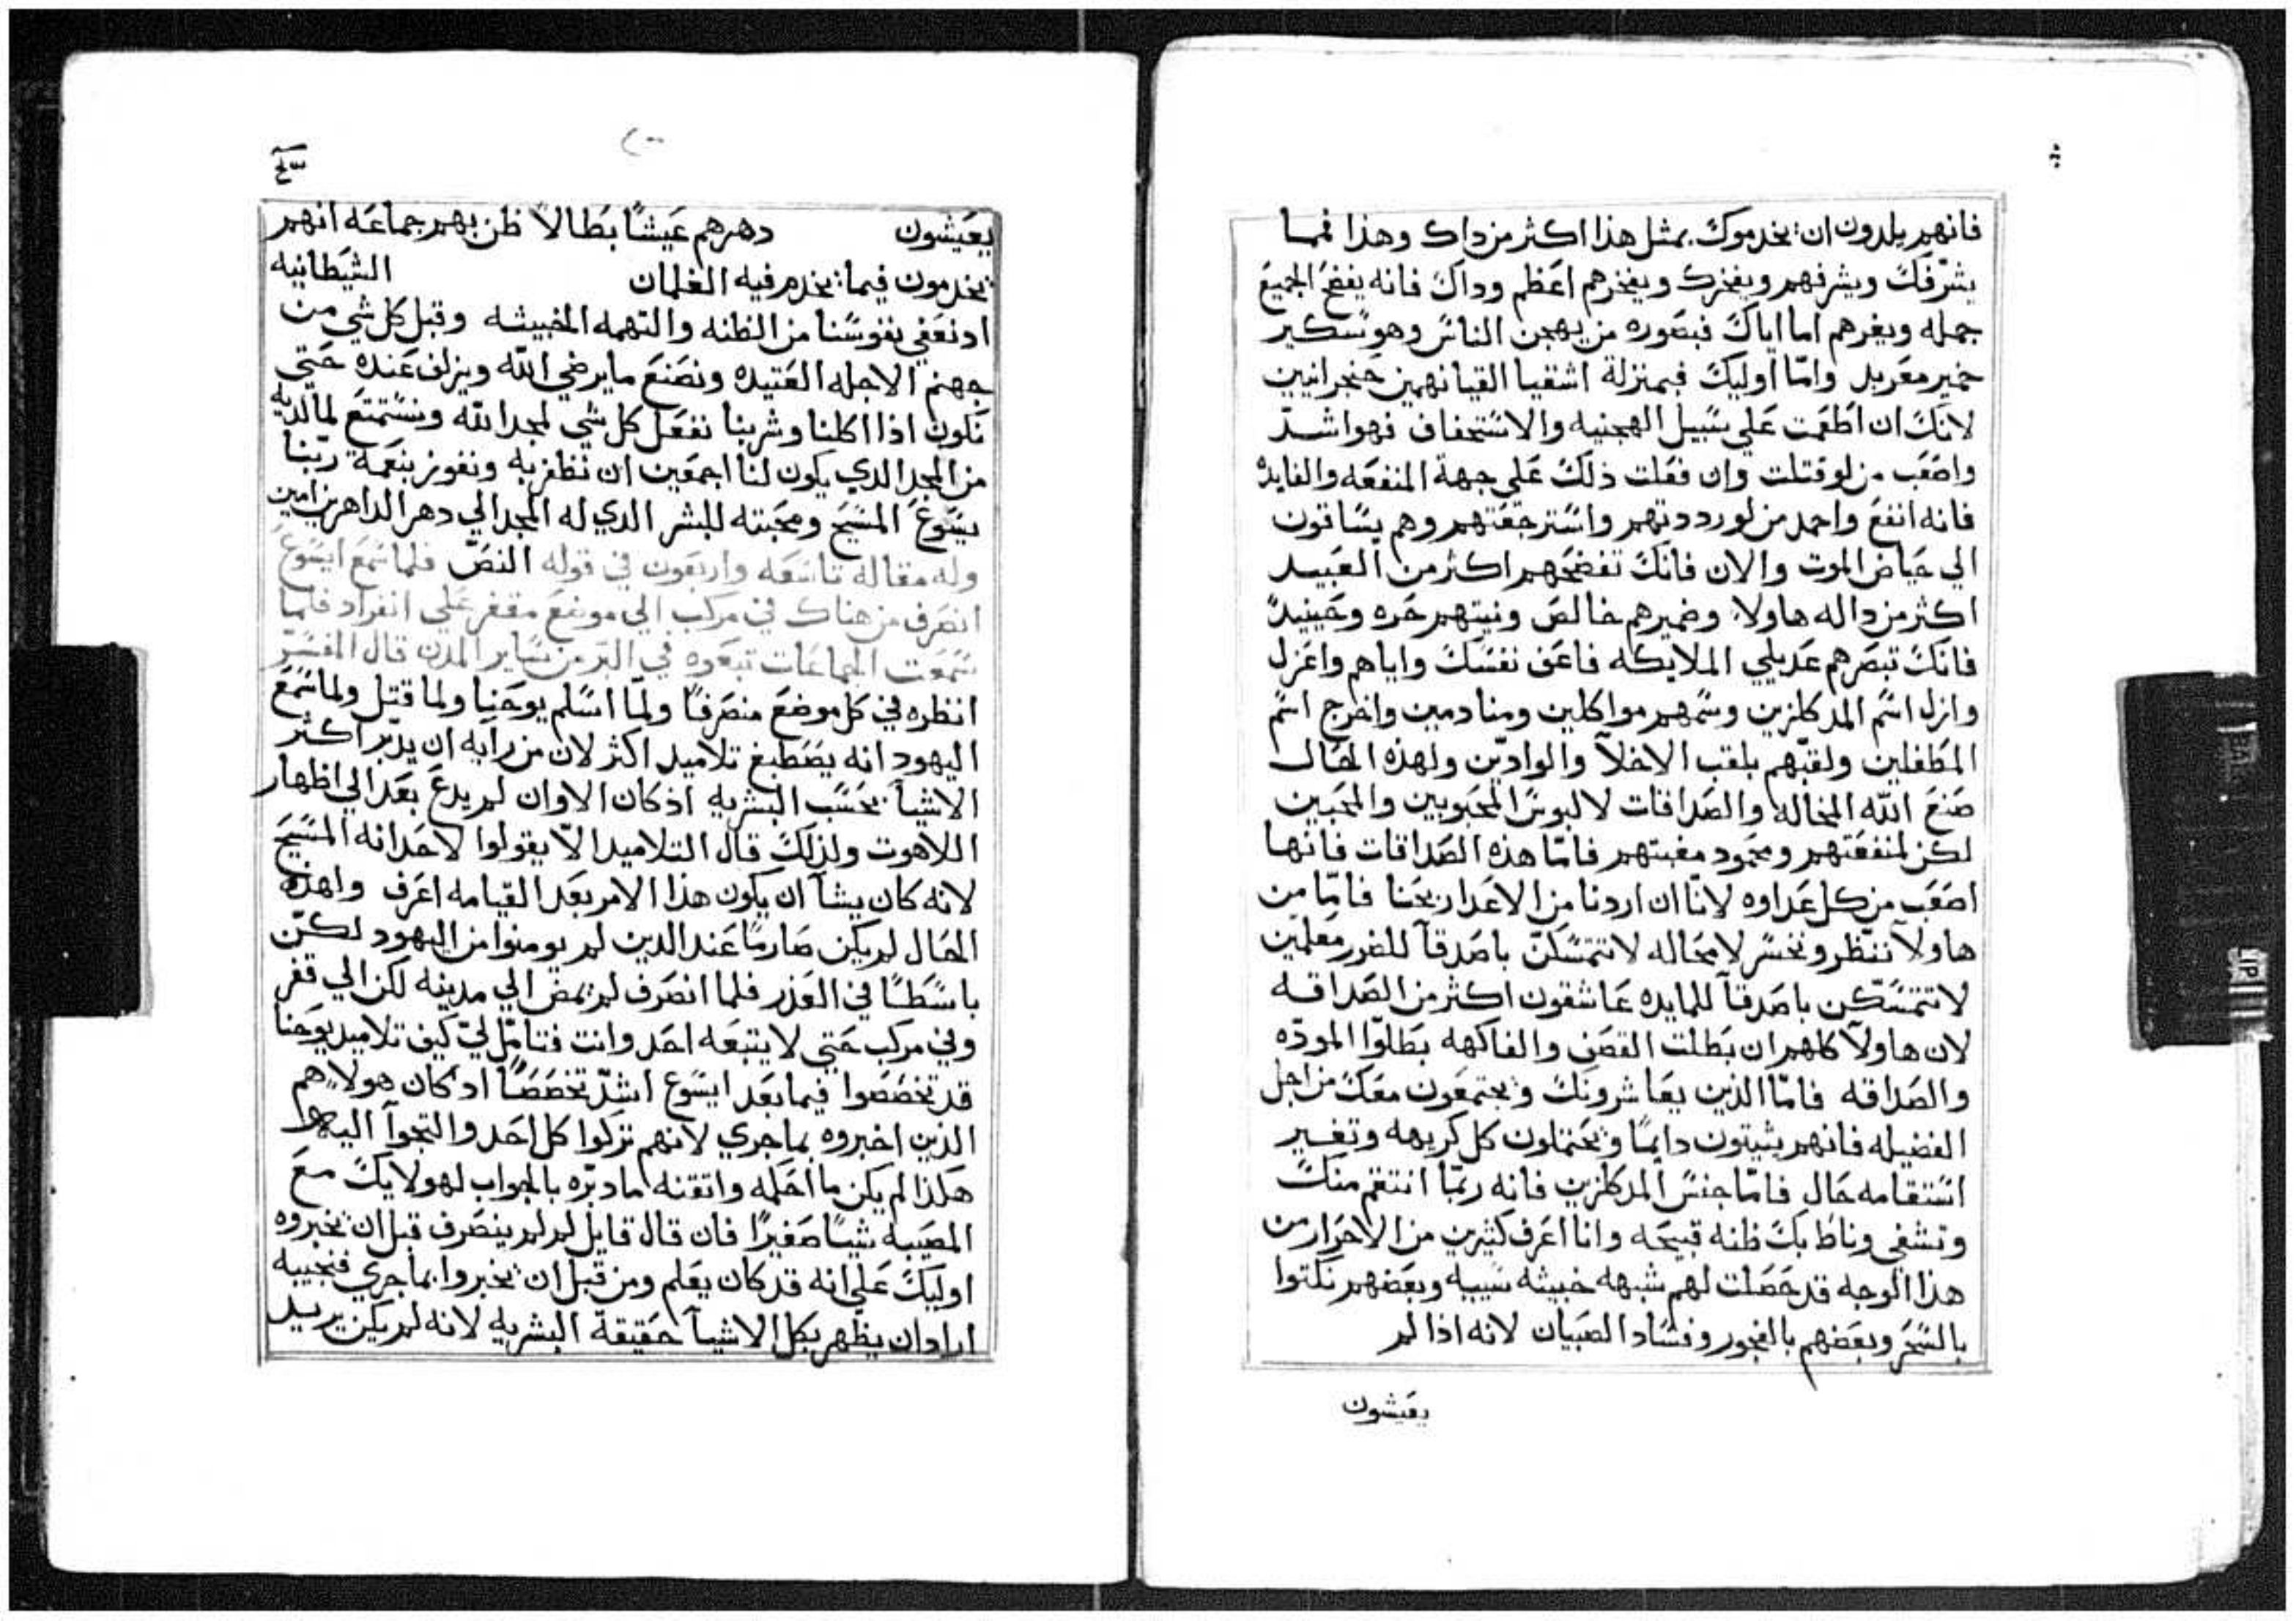 فانهم يلدون ان يخدموك بمثل هذا اكثر من داك وهذا فمما
يشرّفك ويشرفهم ويفخرك ويفخرهم اعظم وداك فانه يفضح الجميع
جمله ويغرهم اما اياك فبصوره من يهجن الناس وهو سكير
خمير معربد وامّا اوليك فبمنزلة اشقيا القيانهمين حنجرانيين
لانك ان اطعمت على سبيل الهجنيه والاستخفاف فهو اشدّ
واصعب من لو قتلت وان فعلت ذلك على جهة المنفعه والفايده
فانه انفع واحمد من لو رددتهم واسترجعتهم وهم يساقون
الي حياض الموت والان فانك تفضحهم اكثر من العبيد
اكثر من داله هاولا وضميرهم خالص ونيتهم حره وحينيد
فانك تبصرهم عديلي الملايكه فاعف نفسك واياهم واعزل
وازل اسم المدكلزين وسمهم مواكلين ومنادمين واخرج اسم
المطفلين ولقبّهم بلقب الاخلا والوادّين ولهذه الحال
صنع الله المخاله والصداقات لا لبوس المحبوبين والمحبين
لكن لمنفعتهم ومحمود مغبتهم فامّا هذه الصداقات فانها
اصعب من كل عداوه لانّا ان اردنا من الاعدا ربحنا فامّا من
هاولا ننظر ونخسر لا محاله لا تتمسكنّ باصدقا للضرر معلمين
لا تتمسّكن باصدقا للمايده عاشقون اكثر من الصداقه
لان هاولا كلهم ان بطلت القصف والفاكهه بطلوا المودّه
والصداقه فامّا الذين يعاشرونك ويجتمعون معك من اجل
الفضيله فانهم يثبتون دايمًا ويحتملون كل كريهه وتغير
استقامه حال فامّا جنس المدكلزين فانه ربمّا انتقم منك
وتشفي وناط بك ظنه قبيحه وانا اعرف كثيرين من الاحرار من
هذا الوجه قد حصلت لهم شبهه خبيثه سيبه وبعضهم نكتوا
بالسحر وبعضهم بالفجور وفساد الصبيان لانه اذا لم
يعيشون
يعيشون دهرهم عيشًا بطالاً ظن بهم جماعه انهم
يخدمون فيما يخدم فيه الغلمان الشيطانيه
ادنعفي نفوسنا من الظنه والتهمه الخبيثه وقبل كل شي من
جهنم الاجله العتيده ونصنع ما يرضي الله ويزلف عنده حتى
نكون اذا اكلنا وشربنا نفعل كل شي لمجد الله ونستمتع لما لديه
من المجد الدي يكون لنا اجمعين ان نظفر به ونفوز بنعمة ربّنا
يسّوع المسيح ومحبته للبشر الدي له المجد الي دهر الداهرين امين
وله مقاله تاسعه واربعون في قوله النصّ فلما سمع ايسوع
انصرف من هناك في مركب الي موضع مقفر على انفراد فلما
سمعت الجماعات تبعوه في البر من ساير المدن قال المفسّر
انظره في كل موضع منصرفًا ولمّا اسلم يوحنا ولما قتل ولما سمع
اليهود انه يصطبغ تلاميد اكثر لان من رايه ان يدبّر اكثر
الاشيا بحسب البشريه اذ كان الاوان لم يدع بعد الي اظهار
اللاهوت ولذلك قال التلاميد الاّ يقولوا لاحد انه المسيح
لانه كان يشا ان يكون هذا الامر بعد القيامه اعرف ولهذه
الحال لم يكن صارمًا عند الدين لم يومنوا من اليهود لكنّ
باسًطًا في العذر فلما انصرف لم يمض الي مدينه لكن الي قفر
وفي مركب حتي لا يتبعه احد وانت فتامّل لي كيف تلاميد يوحنا
قد تخصصوا فيما بعد ايسوع اشدّ تخصصًا اد كان هولا هم
الذين اخبروه بما جري لانهم تركوا كل احد والتجوا اليه
هكذا لم يكن ما احكمه واتقنه مادبّره بالجواب لهولايك مع
المصيبه شيًا صغيرًا فان قال قايل لم لم ينصرف قبل ان يخبروه
اوليك على انه قد كان يعلم ومن قبل ان يخبروا بما جري فنجيبه
اراد ان يظهر بكل الاشيا حقيقة البشريه لانه لم يكن يريد